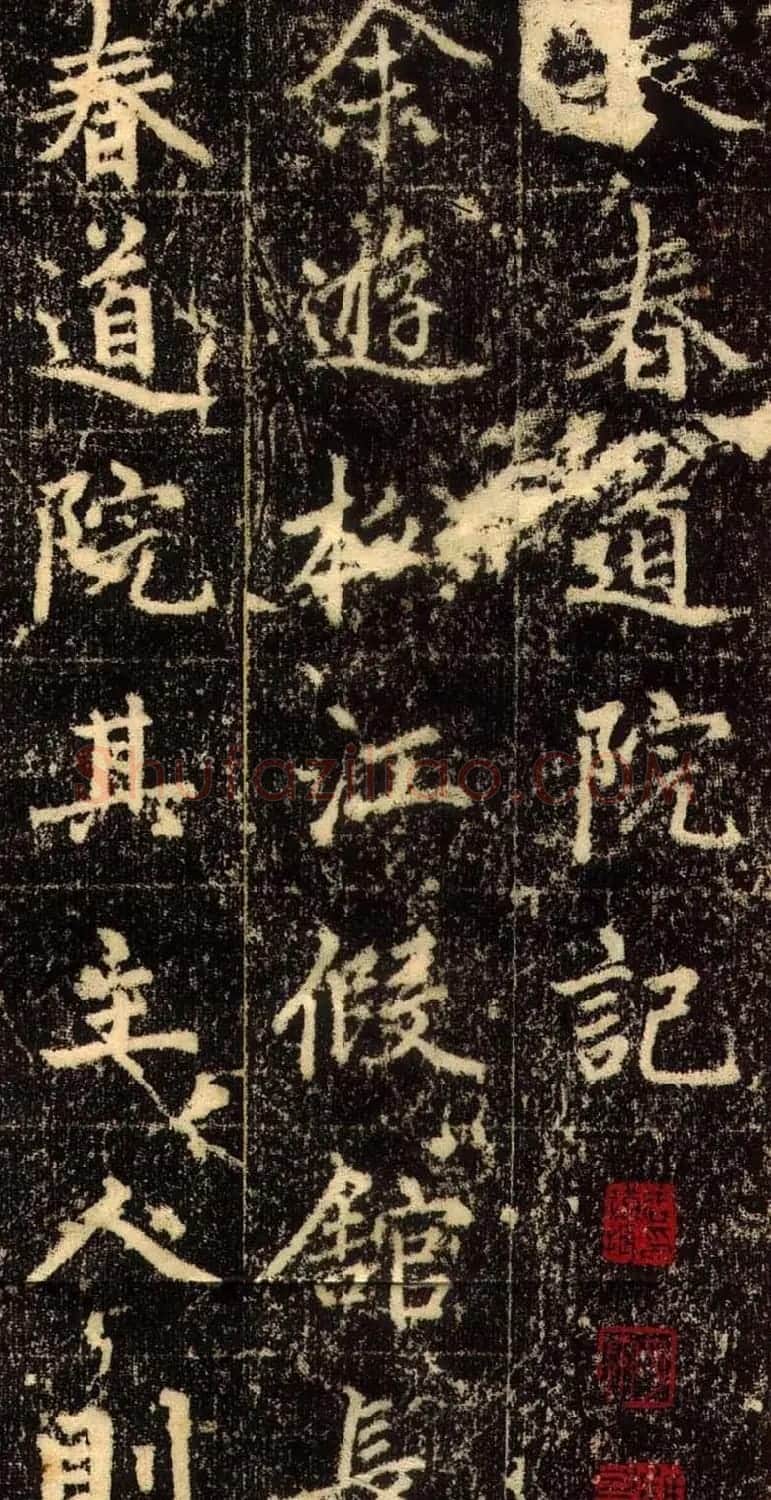 長春道院記
余遊松江假舘長
春道院其主人則
Shufaziliao.COM